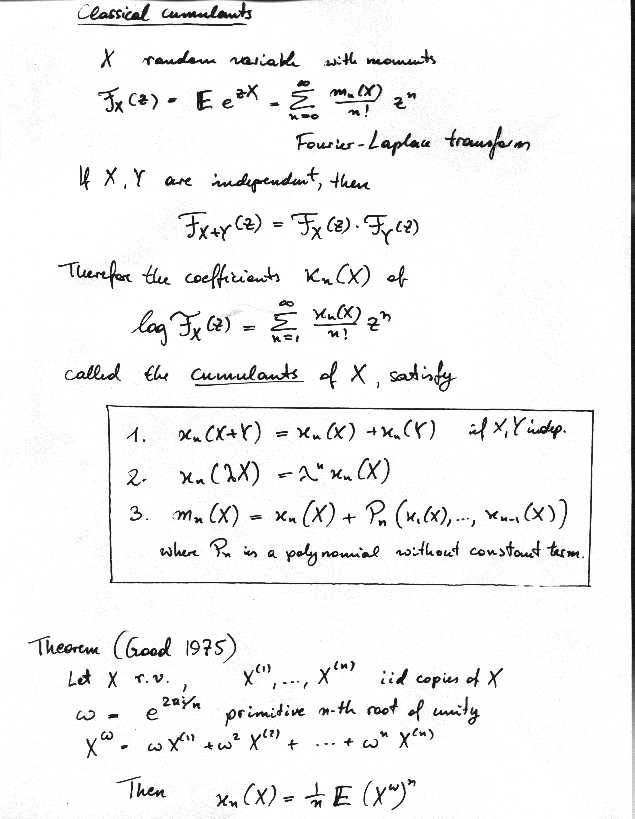 Classical cumulants
X random variable with moments
ℱ_X(z) = 𝔼 e^{zX} = ∑_{n=0}^{∞} m_n(X)/n! z^n
Fourier-Laplace transform
If X, Y are independent, then
ℱ_{X+Y}(z) = ℱ_X(z) · ℱ_Y(z)
Therefor the coefficients κ_n(X) of
log ℱ_X(z) = ∑_{n=1}^{∞} κ_n(X)/n! z^n
called the cumulants of X, satisfy
1. κ_n(X+Y) = κ_n(X) + κ_n(Y) if X, Y indep.
2. κ_n(λX) = λ^n κ_n(X)
3. m_n(X) = κ_n(X) + P_n(κ_1(X), ..., κ_{n-1}(X))
where P_n is a polynomial without constant term.
Theorem (Good 1975)
Let X r.v., X^{(1)}, ..., X^{(n)} iid copies of X
ω = e^{2πi/n} primitive n-th root of unity
X^ω = ω X^{(1)} + ω^2 X^{(2)} + ... + ω^n X^{(n)}
Then κ_n(X) = 1/n 𝔼 (X^ω)^n